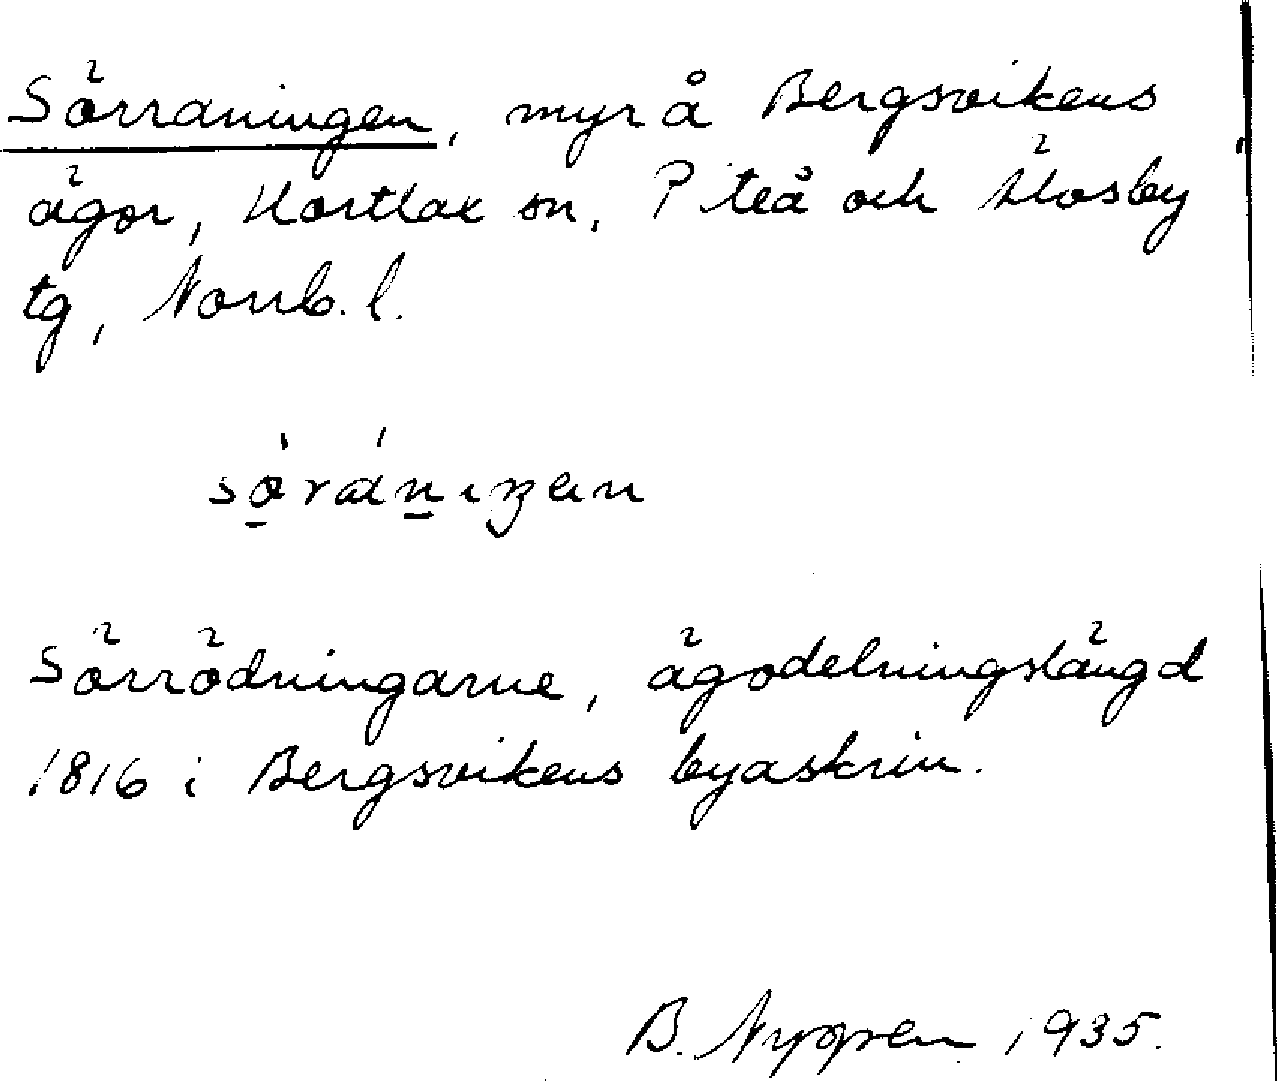 Sörraningen, myr å Bergsvikens
ägor, Hortlax sn, Piteå och Älvsby
tg, Norrb. l.
Sörrödningarne, ägodelningslängd
1816 i Bergsvikens byaskrin.
B. Nygren 1935.